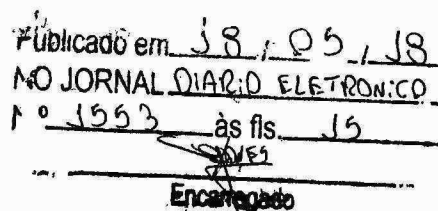 Publicado em 18 / 05 / 18
NO JORNAL DIARIO ELETRONICO
Nº 1553 às fls. 15
Encarregado